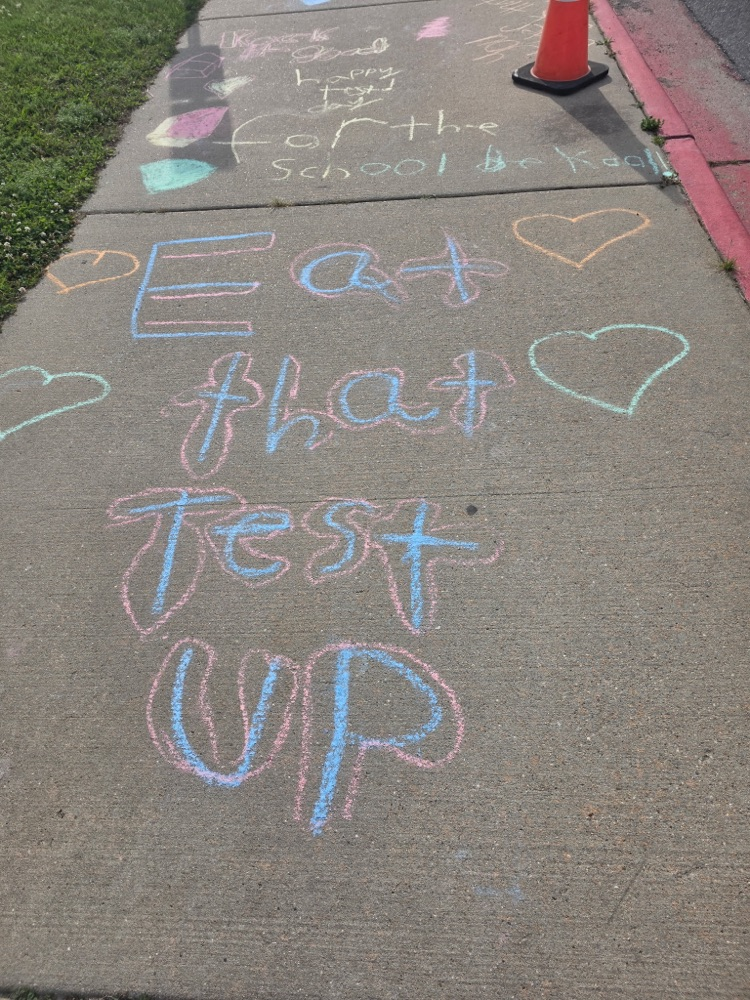 happy
test
day
for the
School be Kool
Eat
that
Test
UP